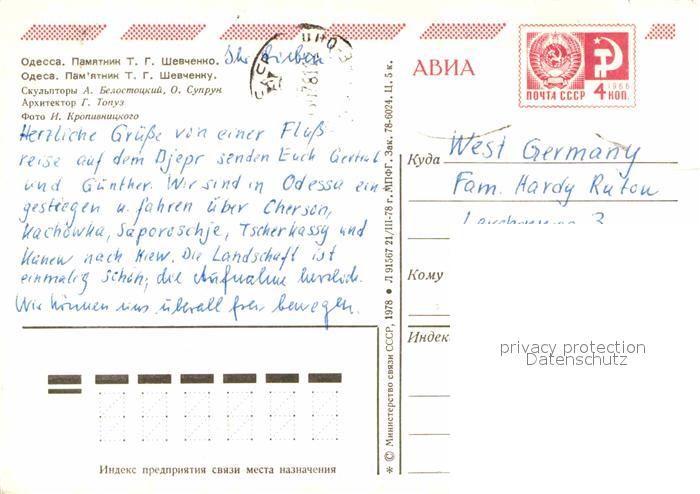 Одесса. Памятник Т. Г. Шевченко.
Одеса. Пам'ятник Т. Г. Шевченку.
Скульпторы А. Белостоцкий, О. Супрун
Архитектор Г. Топуз
Фото И. Кропивницкого
Ihr Lieben
АВИА
ПОЧТА СССР 1966 4 КОП.
Herzliche Grüße von einer Fluß
reise auf dem Djepr senden Euch Gertrud
und Günther. Wir sind in Odessa ein
gestiegen u. fahren über Cherson,
Kachowka, Saporoschje, Tscherkassy und
Kanew nach Kiew. Die Landschaft ist
einmalig schön, die Aufnahme herzlich.
Wir können uns überall frei bewegen.
* © Министерство связи СССР, 1978 • Л 91567 21/III-78 г. МПФГ. Зак. 78-6024. Ц. 5 к.
Куда
West Germany
Fam. Hardy
Кому
Индекс
privacy protection
Datenschutz
Индекс предприятия связи места назначения